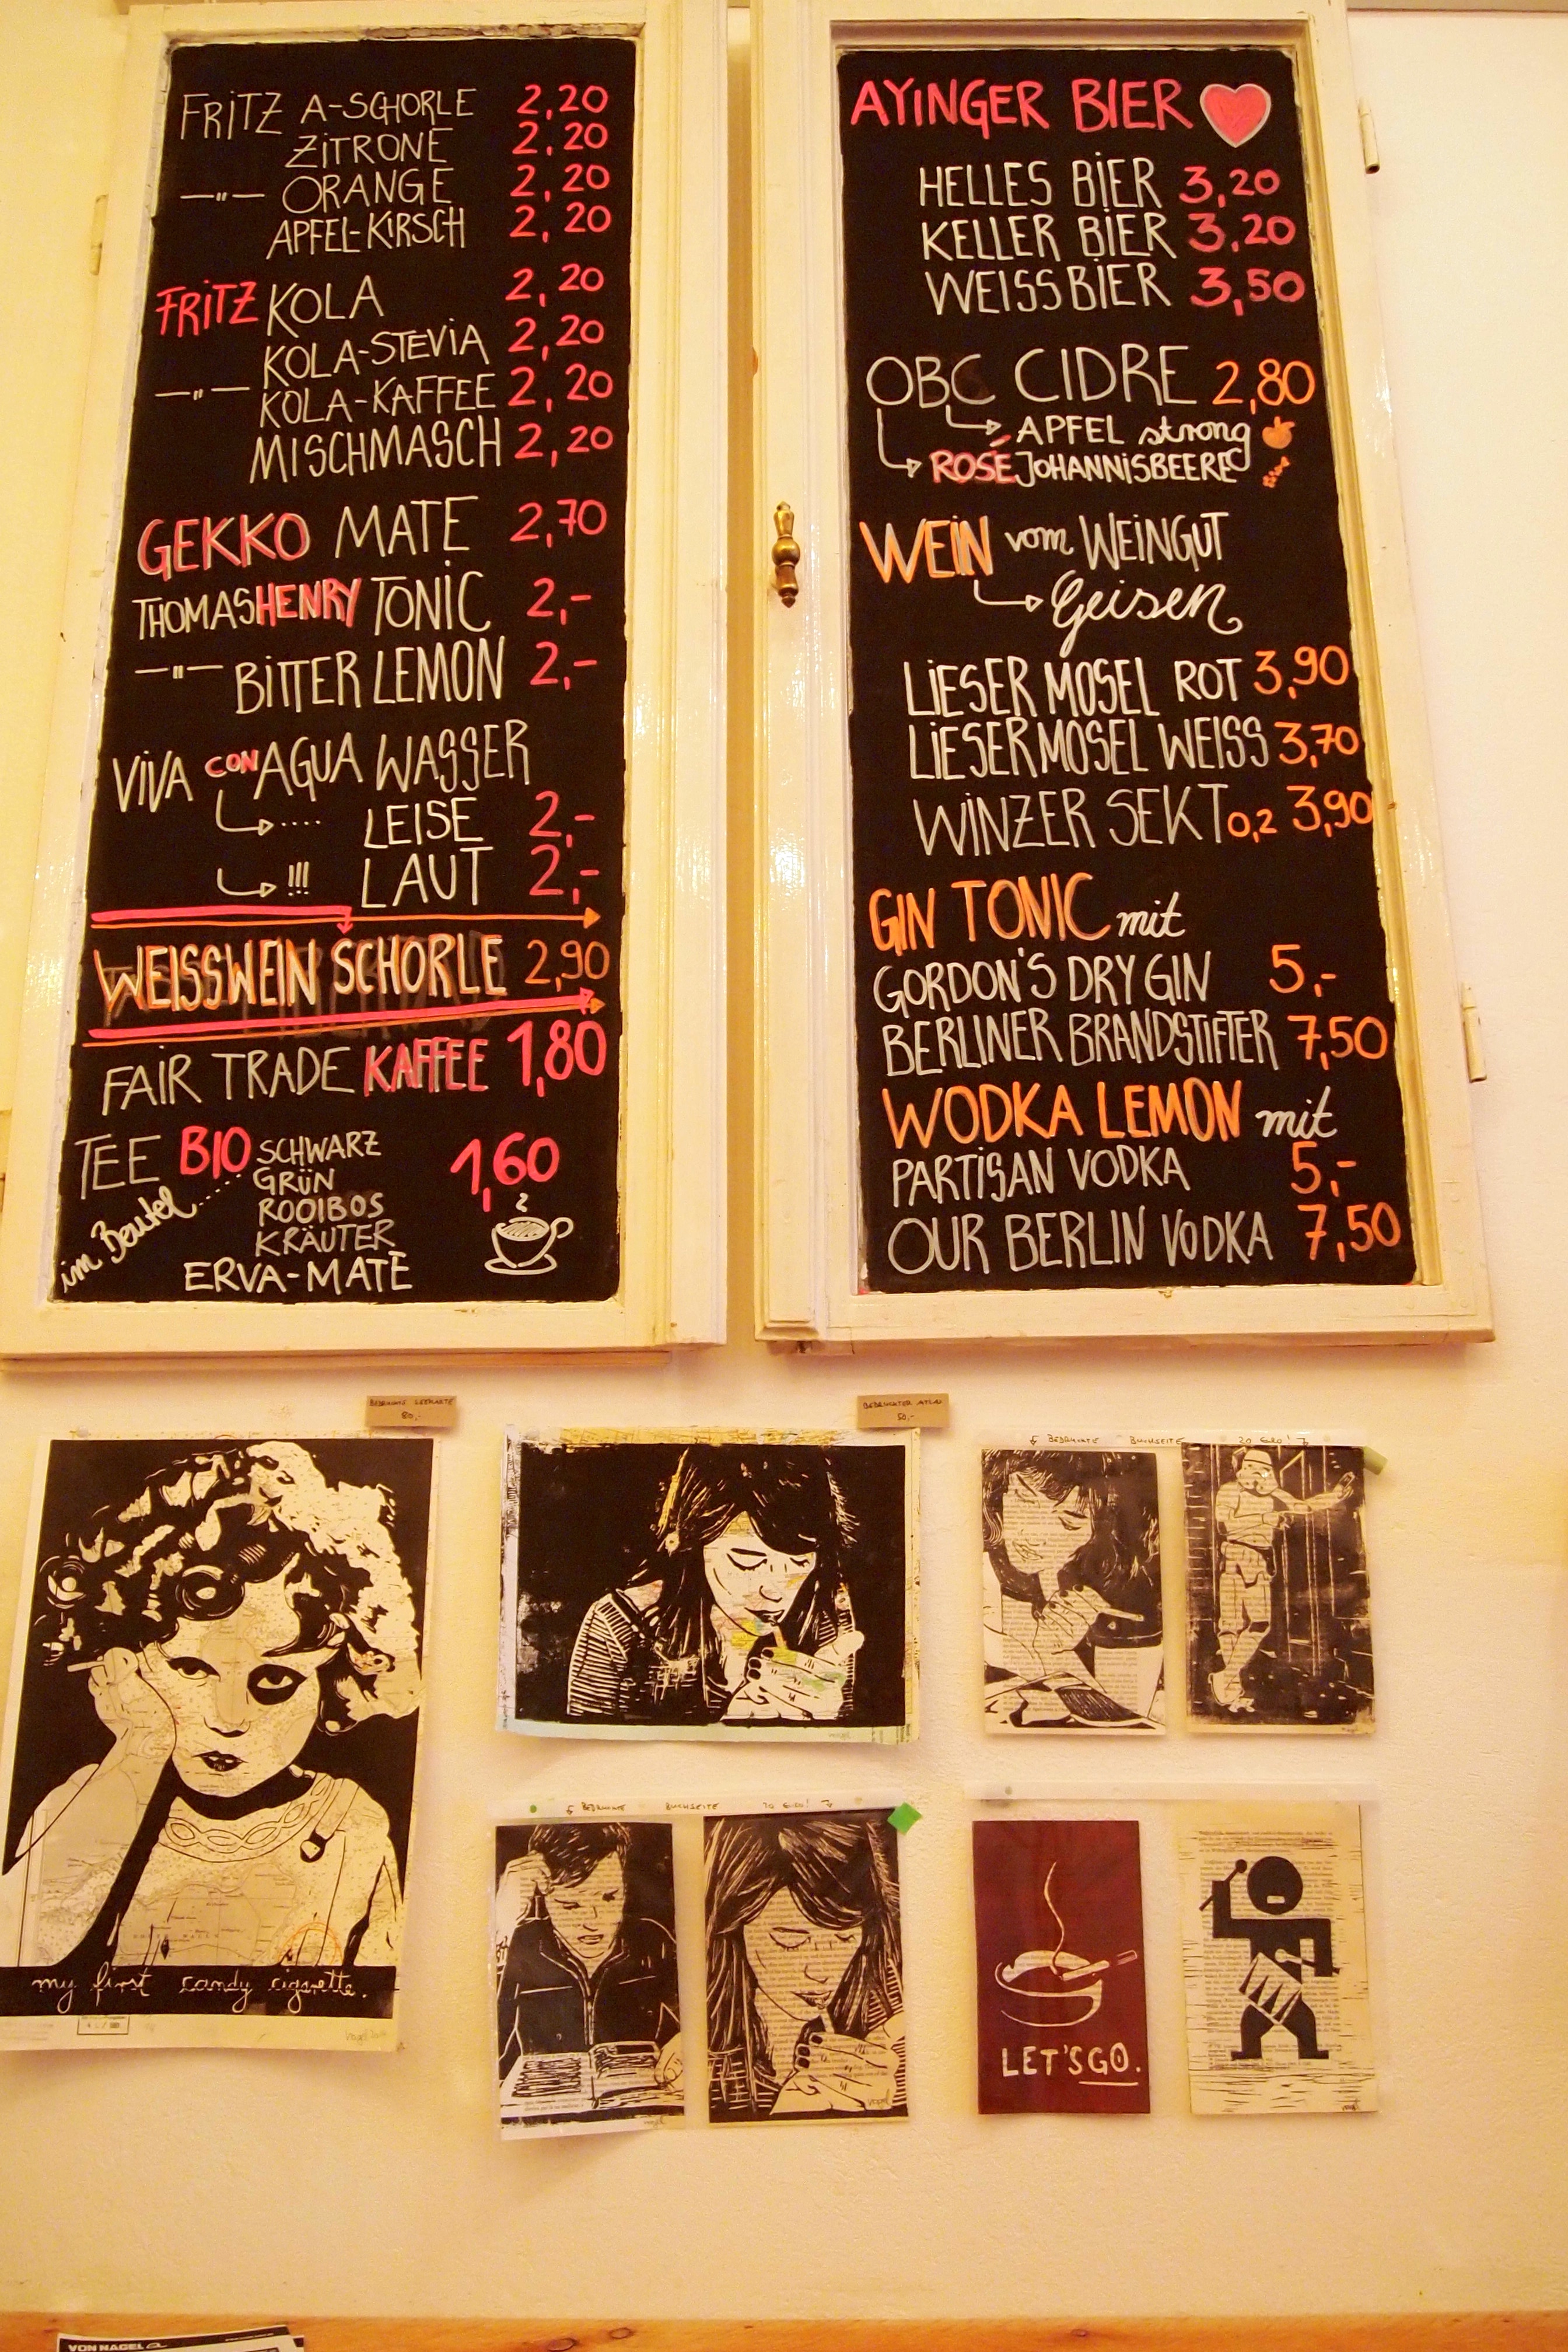 FRITZ A-SCHORLE 2,20
ZITRONE 2,20
—"— ORANGE 2,20
APFEL-KIRSCH 2,20
FRITZ KOLA 2,20
KOLA-STEVIA 2,20
—"— KOLA-KAFFEE 2,20
MISCHMASCH 2,20
GEKKO MATE 2,70
THOMAS HENRY TONIC 2,-
—"— BITTER LEMON 2,-
VIVA CON AGUA WASSER
.... LEISE 2,-
!!! LAUT 2,-
WEISSWEIN SCHORLE 2,90
FAIR TRADE KAFFEE 1,80
TEE BIO SCHWARZ 1,60
GRÜN
im Beutel..... ROOIBOS
KRÄUTER
ERVA-MATE
AYINGER BIER
HELLES BIER 3,20
KELLER BIER 3,20
WEISSBIER 3,50
OBC CIDRE 2,80
APFEL strong
ROSÉ JOHANNISBEERE
WEIN vom WEINGUT
Geisen
LIESER MOSEL ROT 3,90
LIESER MOSEL WEISS 3,70
WINZER SEKT 0,2 3,90
GIN TONIC mit
GORDON'S DRY GIN 5,-
BERLINER BRANDSTIFTER 7,50
WODKA LEMON mit
PARTISAN VODKA 5,-
OUR BERLIN VODKA 7,50
BEDRUCKTE SEEKARTE
80,-
BEDRUCKTER ATLAS
50,-
BEDRUCKTE BUCHSEITE 20 Euro!
my first candy cigarette.
BEDRUCKTE BUCHSEITE 20 Euro!
LET'S GO.
VON NAGEL